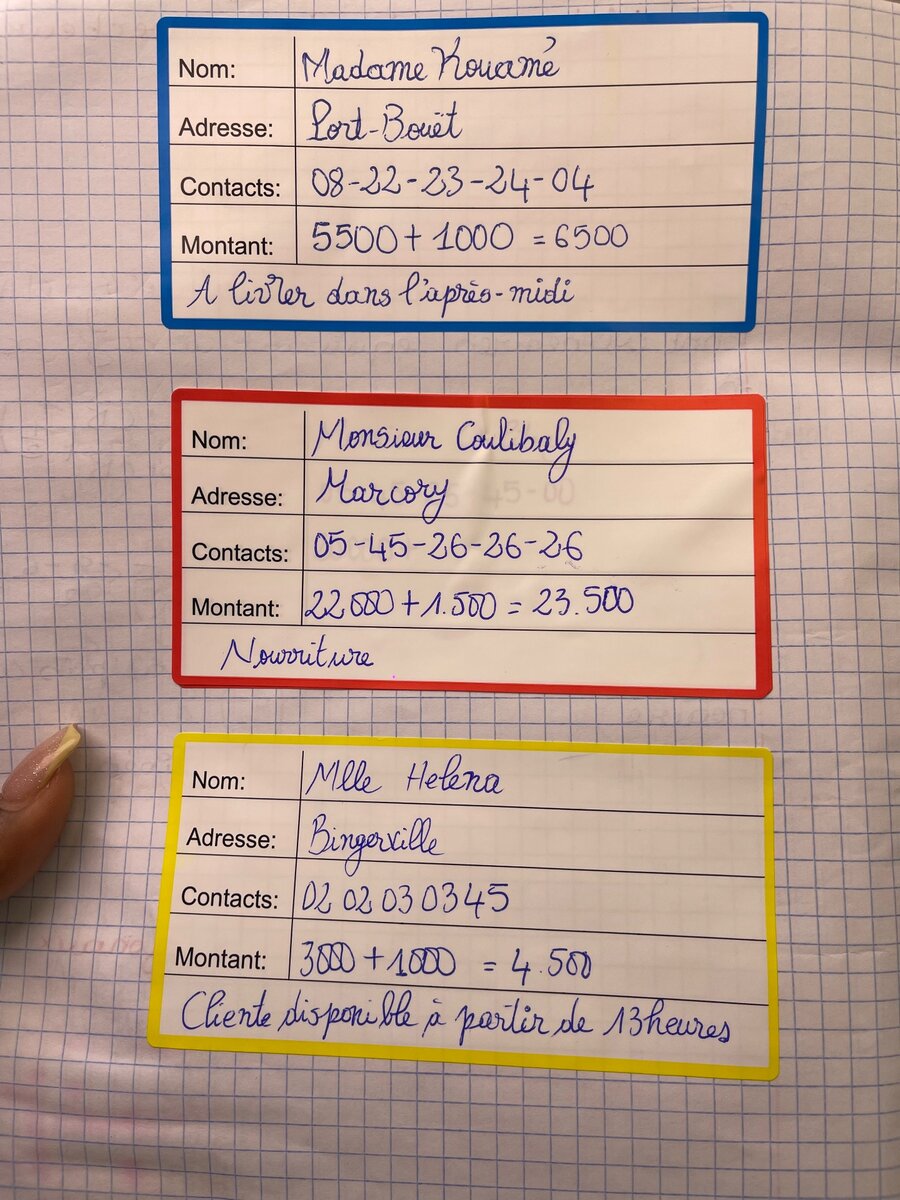 Nom: Madame Kouamé
Adresse: Port-Bouët
Contacts: 08-22-23-24-04
Montant: 5500 + 1000 = 6500
A livrer dans l'après-midi
Nom: Monsieur Coulibaly
Adresse: Marcory
Contacts: 05-45-26-26-26
Montant: 22000 + 1.500 = 23.500
Nourriture
Nom: Mlle Helena
Adresse: Bingerville
Contacts: 02 02 03 03 45
Montant: 3000 + 1000 = 4.500
Cliente disponible à partir de 13heures